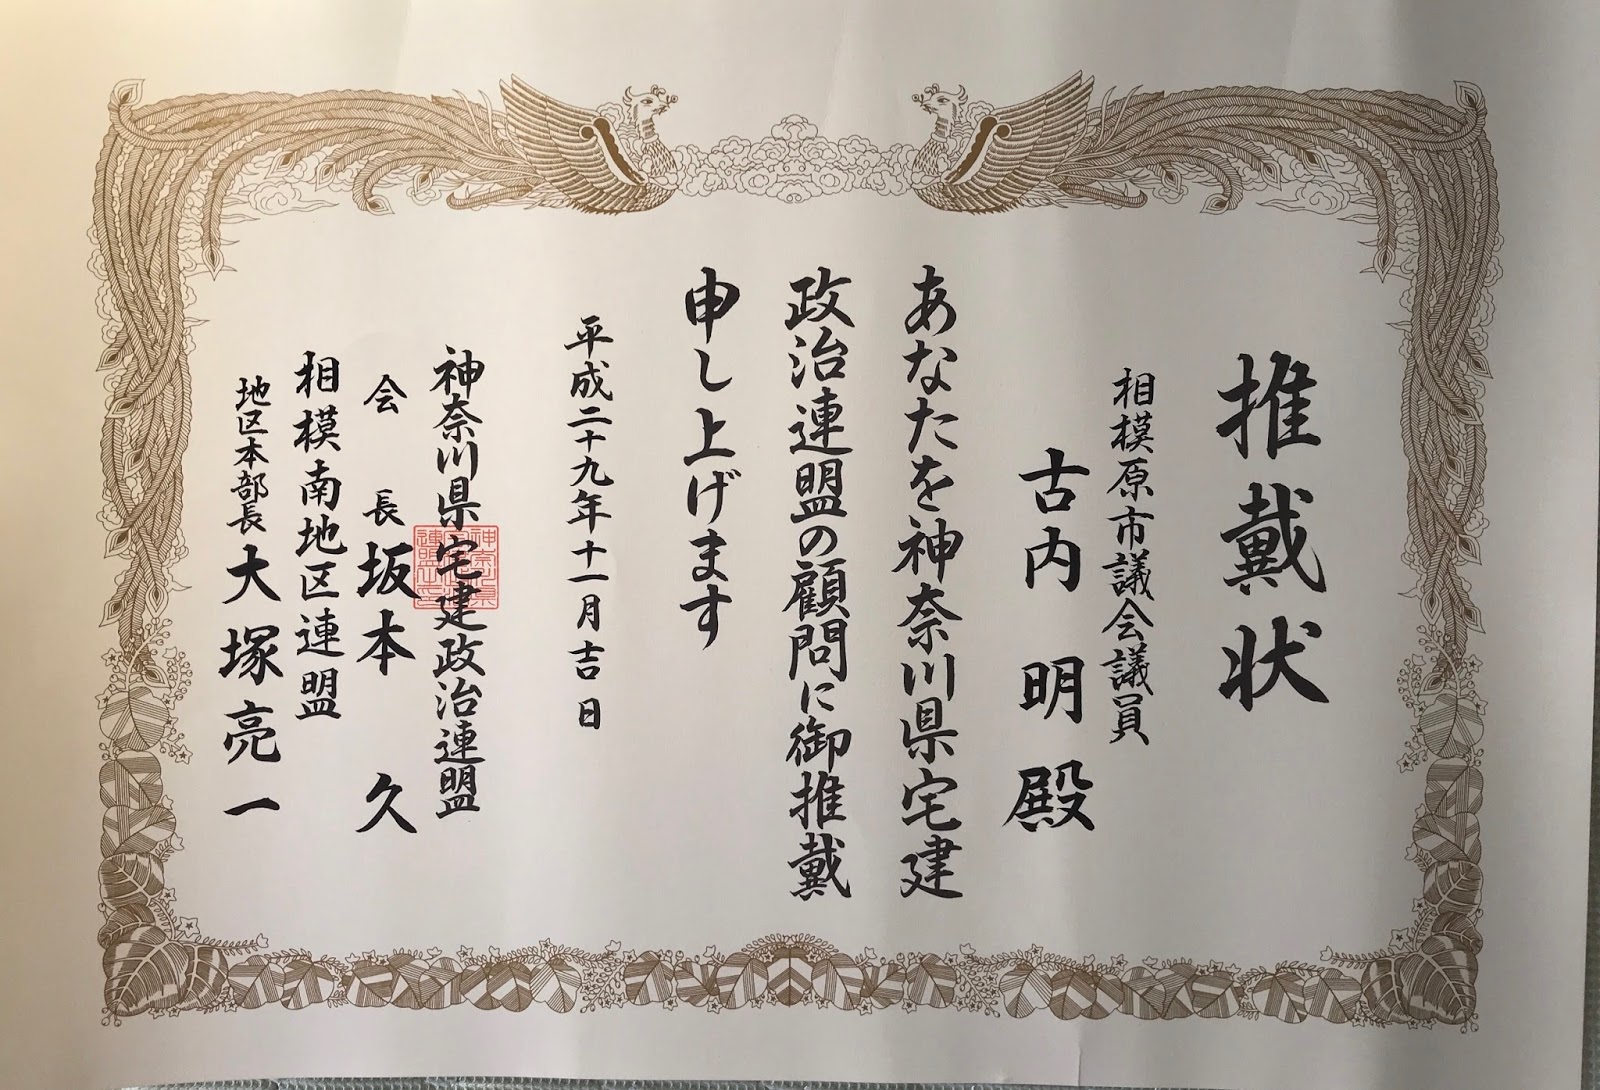 推戴状
相模原市議会議員
古内明殿
あなたを神奈川県宅建
政治連盟の顧問に御推戴
申し上げます
平成二十九年十一月吉日
神奈川県宅建政治連盟
会長 坂本久
相模南地区連盟
地区本部長 大塚亮一